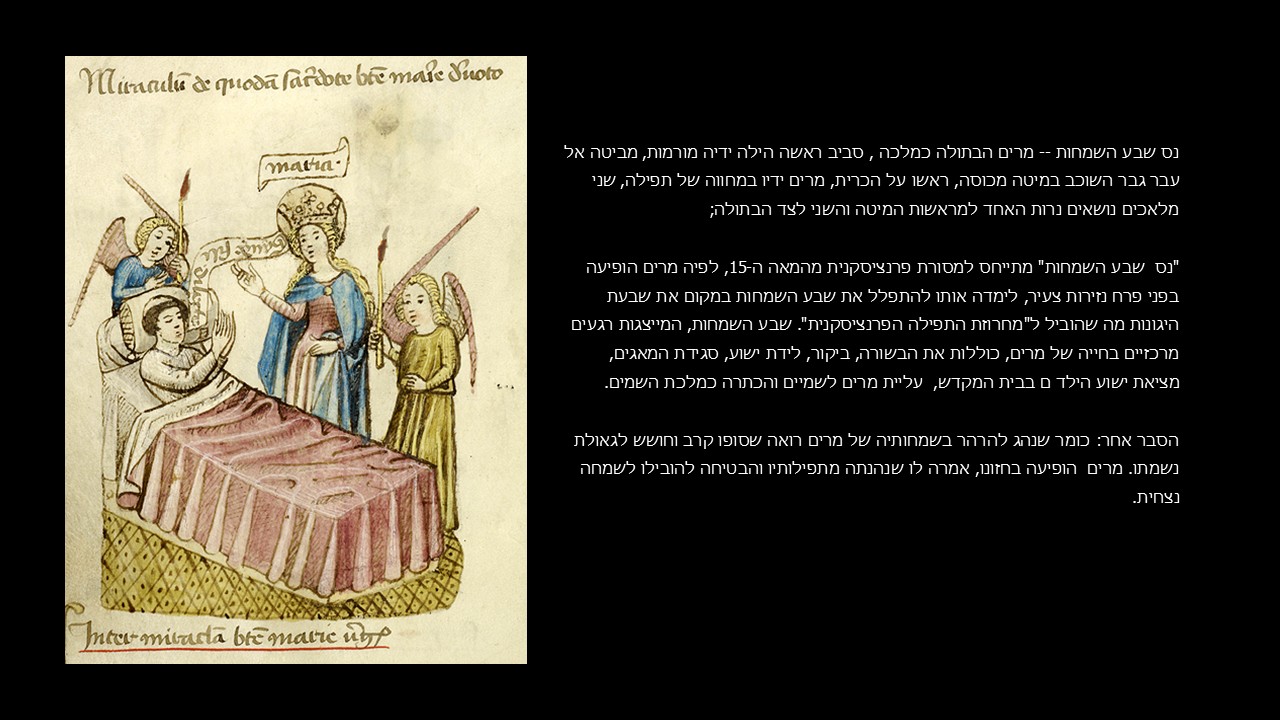 Miraculū de quodā sac̄rdote btē marie deuoto
maria
Inter miracla btē marie
נס שבע השמחות -- מרים הבתולה כמלכה , סביב ראשה הילה ידיה מורמות, מביטה אל
עבר גבר השוכב במיטה מכוסה, ראשו על הכרית, מרים ידיו במחווה של תפילה, שני
מלאכים נושאים נרות האחד למראשות המיטה והשני לצד הבתולה;
"נס שבע השמחות" מתייחס למסורת פרנציסקנית מהמאה ה-15, לפיה מרים הופיעה
בפני פרח נזירות צעיר, לימדה אותו להתפלל את שבע השמחות במקום את שבעת
היגונות מה שהוביל ל"מחרוזת התפילה הפרנציסקנית". שבע השמחות, המייצגות רגעים
מרכזיים בחייה של מרים, כוללות את הבשורה, ביקור, לידת ישוע, סגידת המאגים,
מציאת ישוע הילד ם בבית המקדש, עליית מרים לשמיים והכתרה כמלכת השמים.
הסבר אחר: כומר שנהג להרהר בשמחותיה של מרים רואה שסופו קרב וחושש לגאולת
נשמתו. מרים הופיעה בחזונו, אמרה לו שנהנתה מתפילותיו והבטיחה להובילו לשמחה
נצחית.